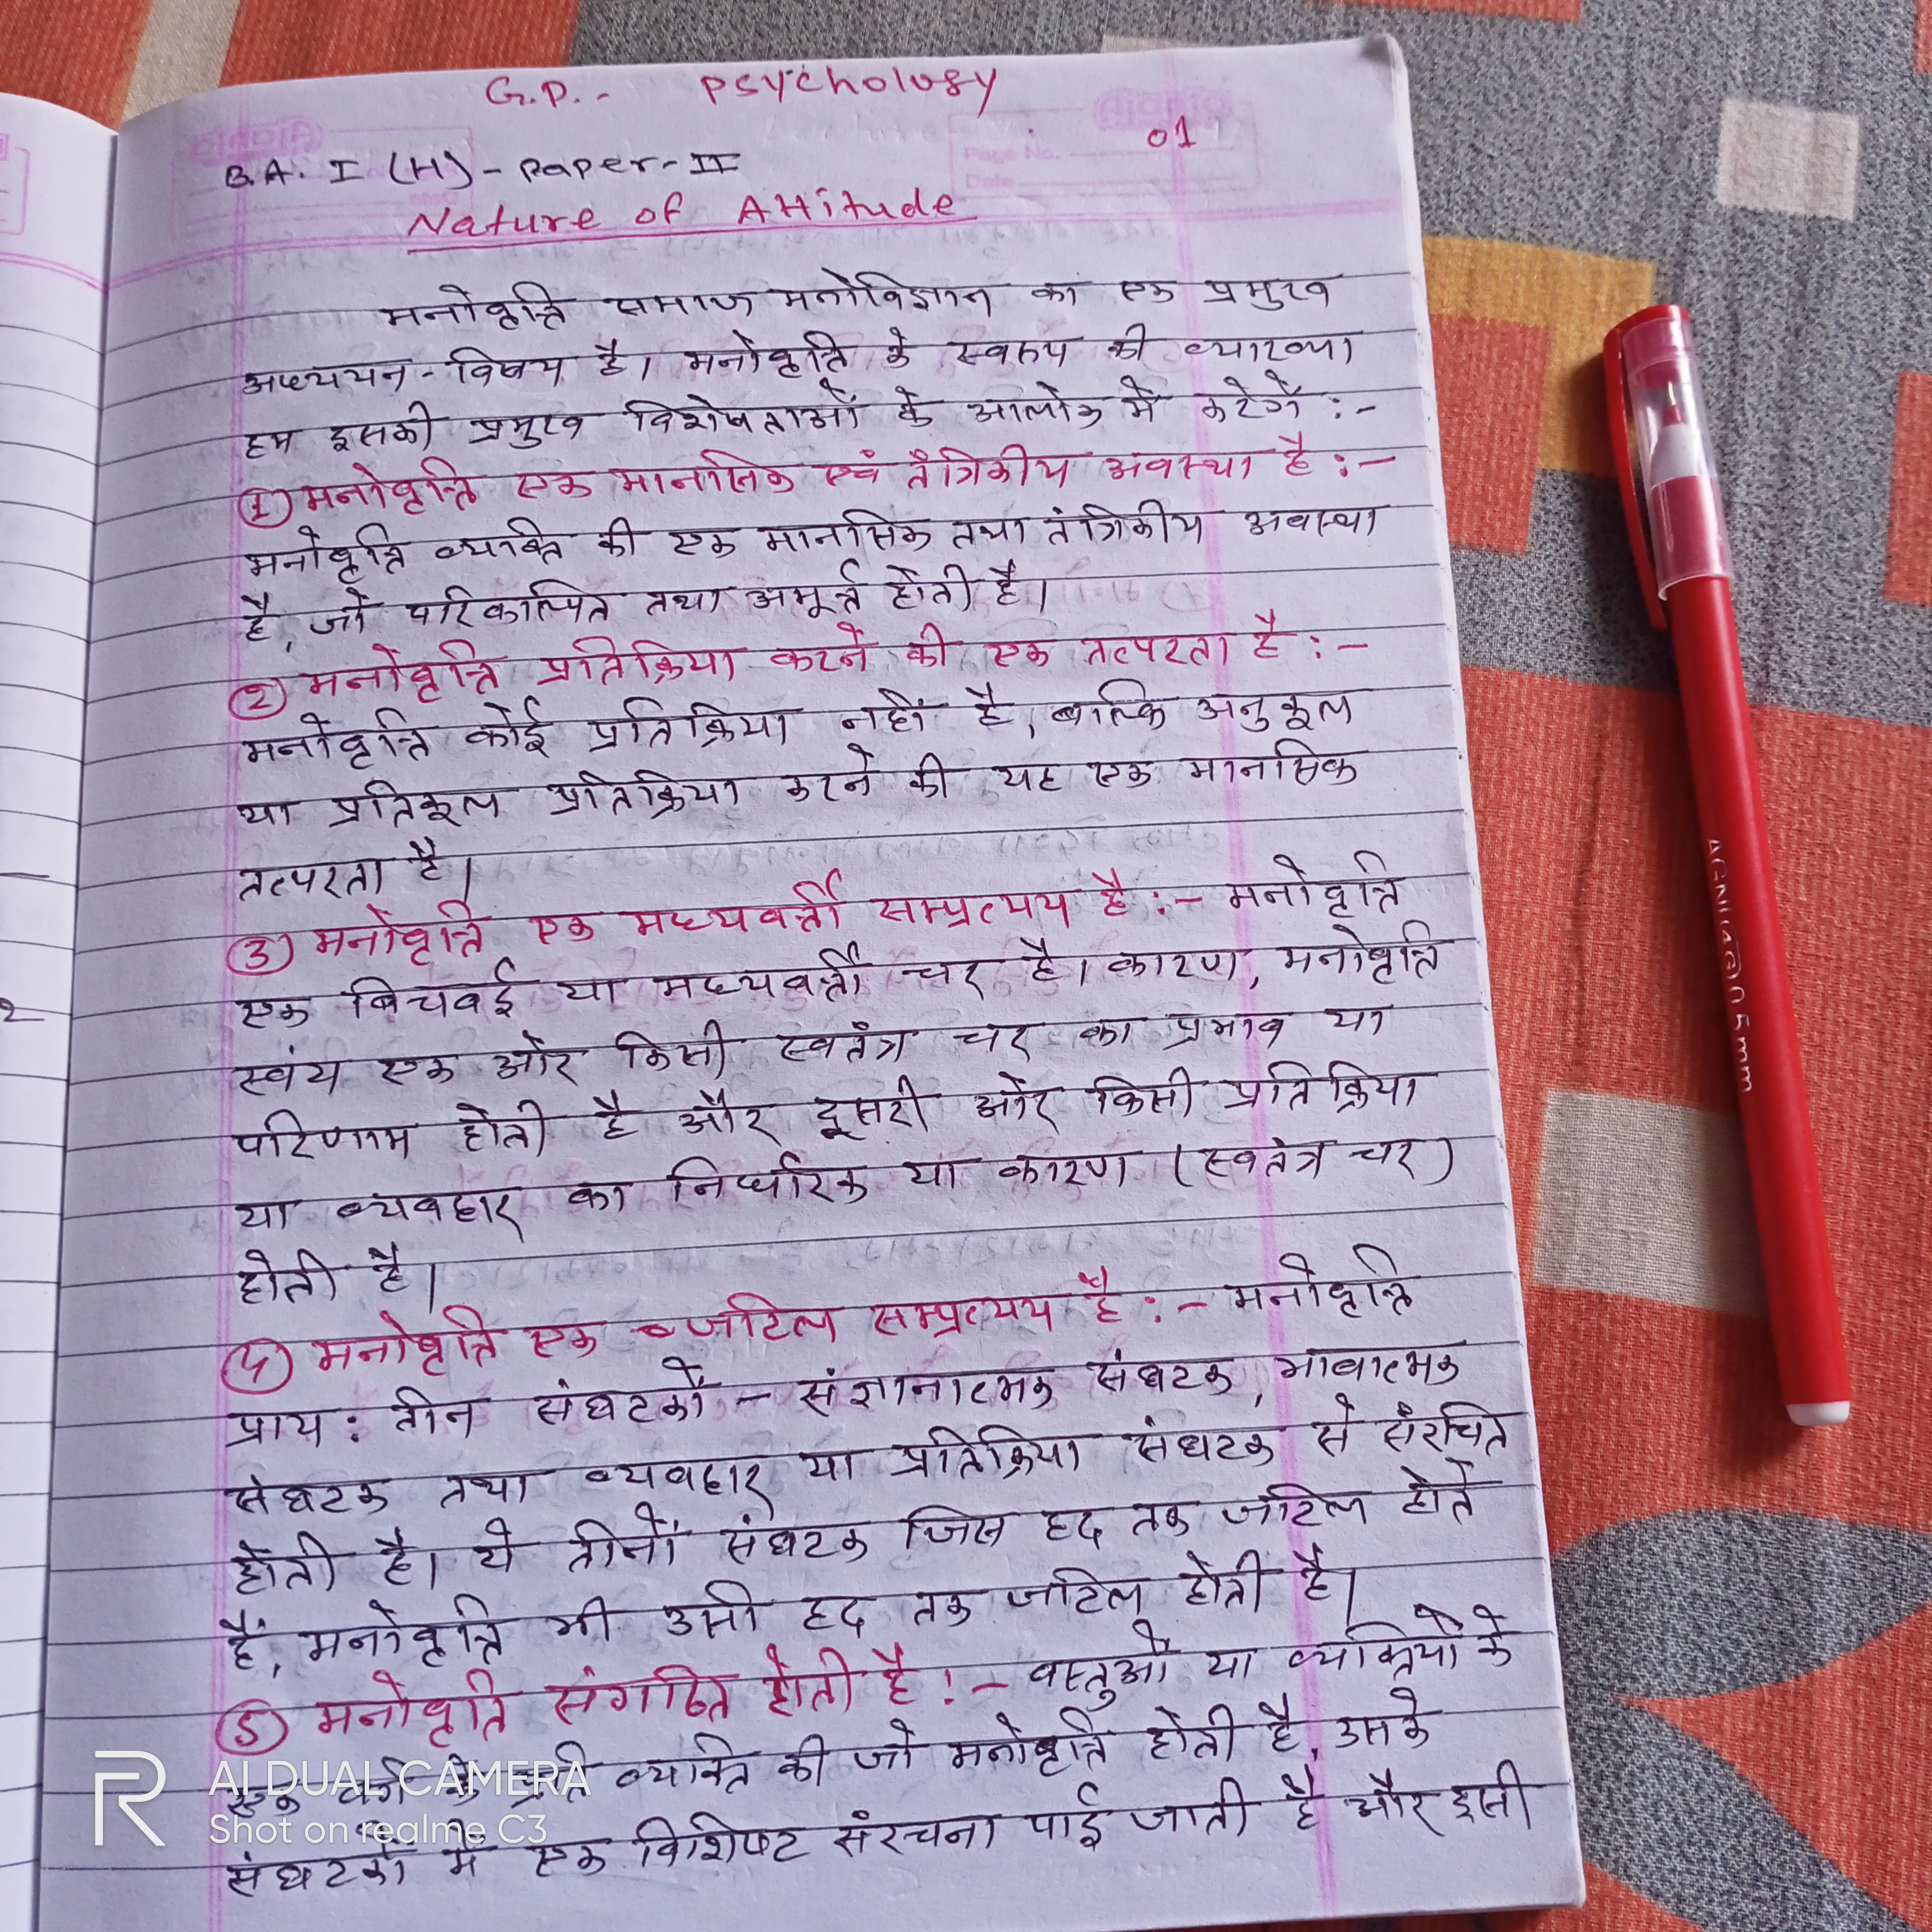 G.P.- Psychology
01
B.A. I (H) - Paper - II
Nature of Attitude
मनोवृत्ति समाज मनोविज्ञान का एक प्रमुख
अध्ययन - विषय है। मनोवृत्ति के स्वरुप की व्याख्या
हम इसकी प्रमुख विशेषताओं के आलोक में करेगें :-
① मनोवृत्ति एक मानसिक एवं तंत्रिकीय अवस्था है :-
मनोवृत्ति व्यक्ति की एक मानसिक तथा तंत्रिकीय अवस्था
है, जो परिकल्पित तथा अमूर्त होती है।
② मनोवृत्ति प्रतिक्रिया करने की एक तत्परता है :-
मनोवृत्ति कोई प्रतिक्रिया नहीं है, बल्कि अनुकूल
या प्रतिकूल प्रतिक्रिया करने की यह एक मानसिक
तत्परता है।
③ मनोवृत्ति एक मध्यवर्ती सम्प्रत्यय है :- मनोवृत्ति
एक बिचवई या मध्यवर्ती चर है। कारण, मनोवृत्ति
स्वंय एक ओर किसी स्वतंत्र चर का प्रभाव या
परिणाम होती है और दूसरी ओर किसी प्रतिक्रिया
या व्यवहार का निर्धारक या कारण (स्वतंत्र चर)
होती है।
④ मनोवृत्ति एक जटिल सम्प्रत्यय है :- मनोवृत्ति
प्राय: तीन संघटकों - संज्ञानात्मक संघटक, भावात्मक
संघटक तथा व्यवहार या प्रतिक्रिया संघटक से संरचित
होती है। ये तीनों संघटक जिस हद तक जटिल होते
हैं, मनोवृत्ति भी उसी हद तक जटिल होती है।
⑤ मनोवृत्ति संगठित होती है :- वस्तुओं या व्यक्तियों के
एक वर्ग के प्रति व्यक्ति की जो मनोवृत्ति होती है, उसके
संघटकों में एक विशिष्ट संरचना पाई जाती है और इसी
R AI DUAL CAMERA
Shot on realme C3
0.5 mm